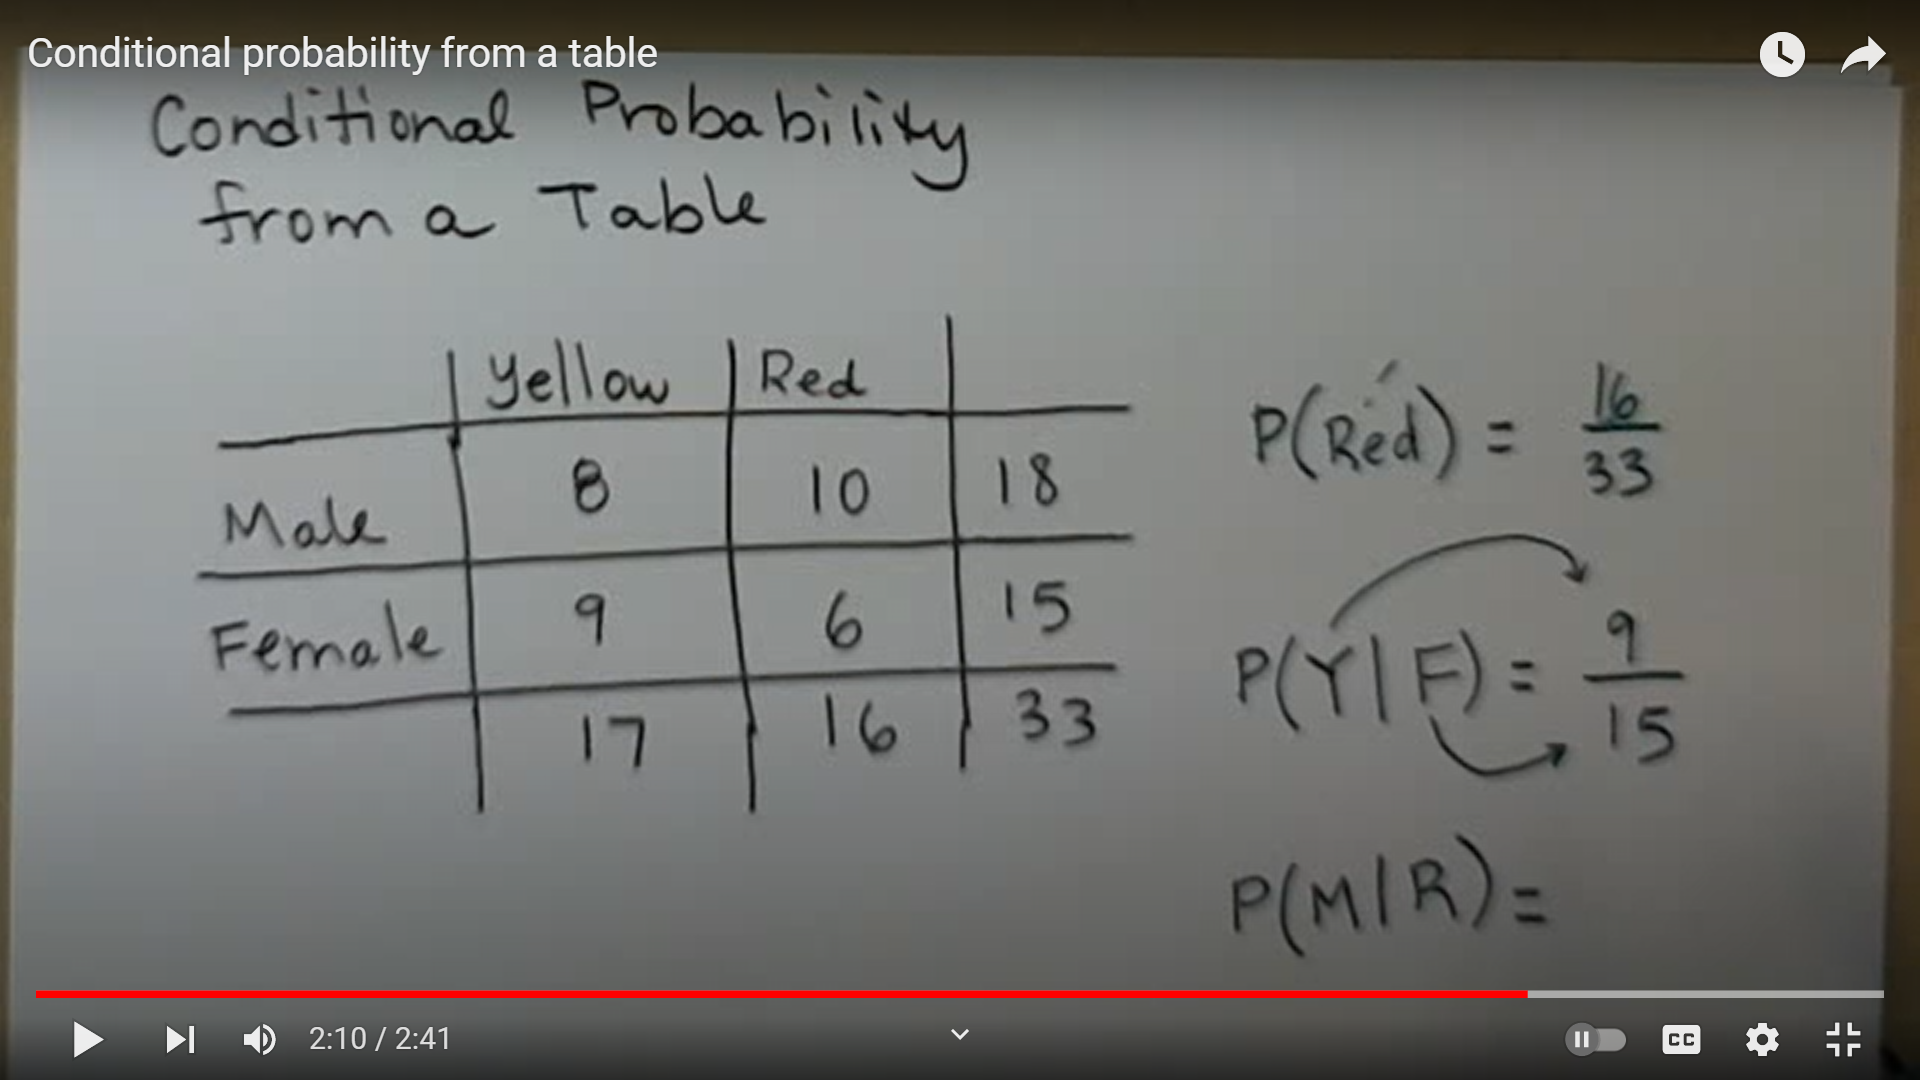 Conditional probability from a table
Conditional Probability
from a Table
Yellow Red
Male 8 10 18
Female 9 6 15
17 16 33
P(Red) = 16/33
P(Y|F) = 9/15
P(M|R) =
2:10 / 2:41
CC